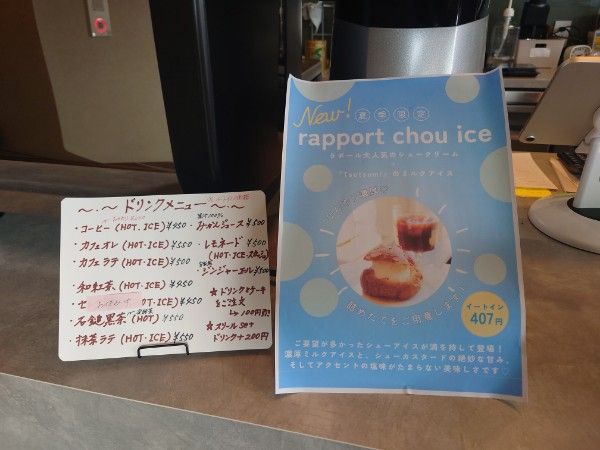 ～・～ドリンクメニュー～・～
・コーヒー(HOT・ICE)¥450
・カフェオレ(HOT・ICE)¥550
・カフェラテ(HOT・ICE)¥550
・和紅茶(HOT・ICE)¥450
・セ OT・ICE)¥450
・石鎚黒茶(HOT)¥550
・抹茶ラテ(HOT・ICE)¥550
・みかんジュース¥500
・レモネード¥500
(HOT・ICE
・ジンジャーエール¥500
★ドリンクとケーキ
をご注文
↳100円引
★スリールset
ドリンク+200円
New!
夏季限定
rapport chou ice
ラポール大人気のシュークリーム
「Tsutsumi」のミルクアイス
詰めたてをご用意します
イートイン
407円
ご要望が多かったシューアイスが満を持して登場!
濃厚ミルクアイスと、シューカスタードの絶妙な甘み。
そしてアクセントの塩味がたまらない美味しさです♡